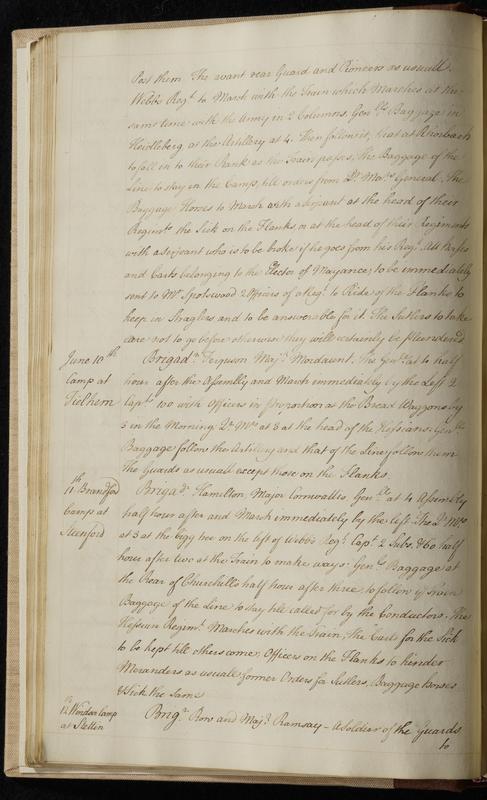 Post them. The avant rear Guard and Pioneers as usuall.
Webbs Regt. to March with the Train which Marches at the
same time with the Army in 2 Columns, Genlls. Baggage in
Heidleberg, as the Artillery at 4. then follow it, that at
to fall in to their Rank as the Train passes, The Baggage of the
Line to stay in the Camp, till orders from Qr. Mar. General. The
Baggage Horses to March with a serjeant at the head of their
Regimts. the Sick on the Flanks, or at the head of their Regiments
with a serjeant who is to be broke if he goes from his Regt. All
and Carts belonging to the Elector of Mayance, to be immediately
sent to Mr. Spotswood 2 Officers of a Regt. to Ride of the Flanks to
keep in Straglers and to be answerable for it. The Sutlers to take
care not to go before otherwise they will certainly be Plundered
June 10th
Camp at
Brigadr. Ferguson Majr. Mordaunt. The Genll. at to half
hour after the Assembly and March immediately by the Left 2
Capts. 100 with Officers in proportion at the Bread Waggons by
5 in the Morning. Qr. Mrs. at 8 at the head of the Hessians. Genlls.
Baggage follow the Artillery and that of the Line follow them
The Guards as usuall except those on the Flanks.
11th
Camp at
Brigadr. Hamilton, Major Cornwallis. Genll. at 4 Assembly
half hour after and March immediately by the left. The Qr. Mrs.
at 3 at the bigg tree on the left of Webbs Regt. Capt. 2 Subs. & 60 half
hour after two at the Train to make ways. Genlls. Baggage at
the Rear of Churchills half hour after three to follow ye Train
Baggage of the Line to stay till called for by the Conductors. The
Hessian Regimt. Marches with the Train, the Carts for the Sick
to be kept till others come, Officers on the Flanks to hinder
Moranders as usuall former Orders for Sutlers, Baggage horses
& Sick the Same
12th Windsor Camp
at
Brigr. Row and Majr. Ramsay – A soldier of the Guards
to